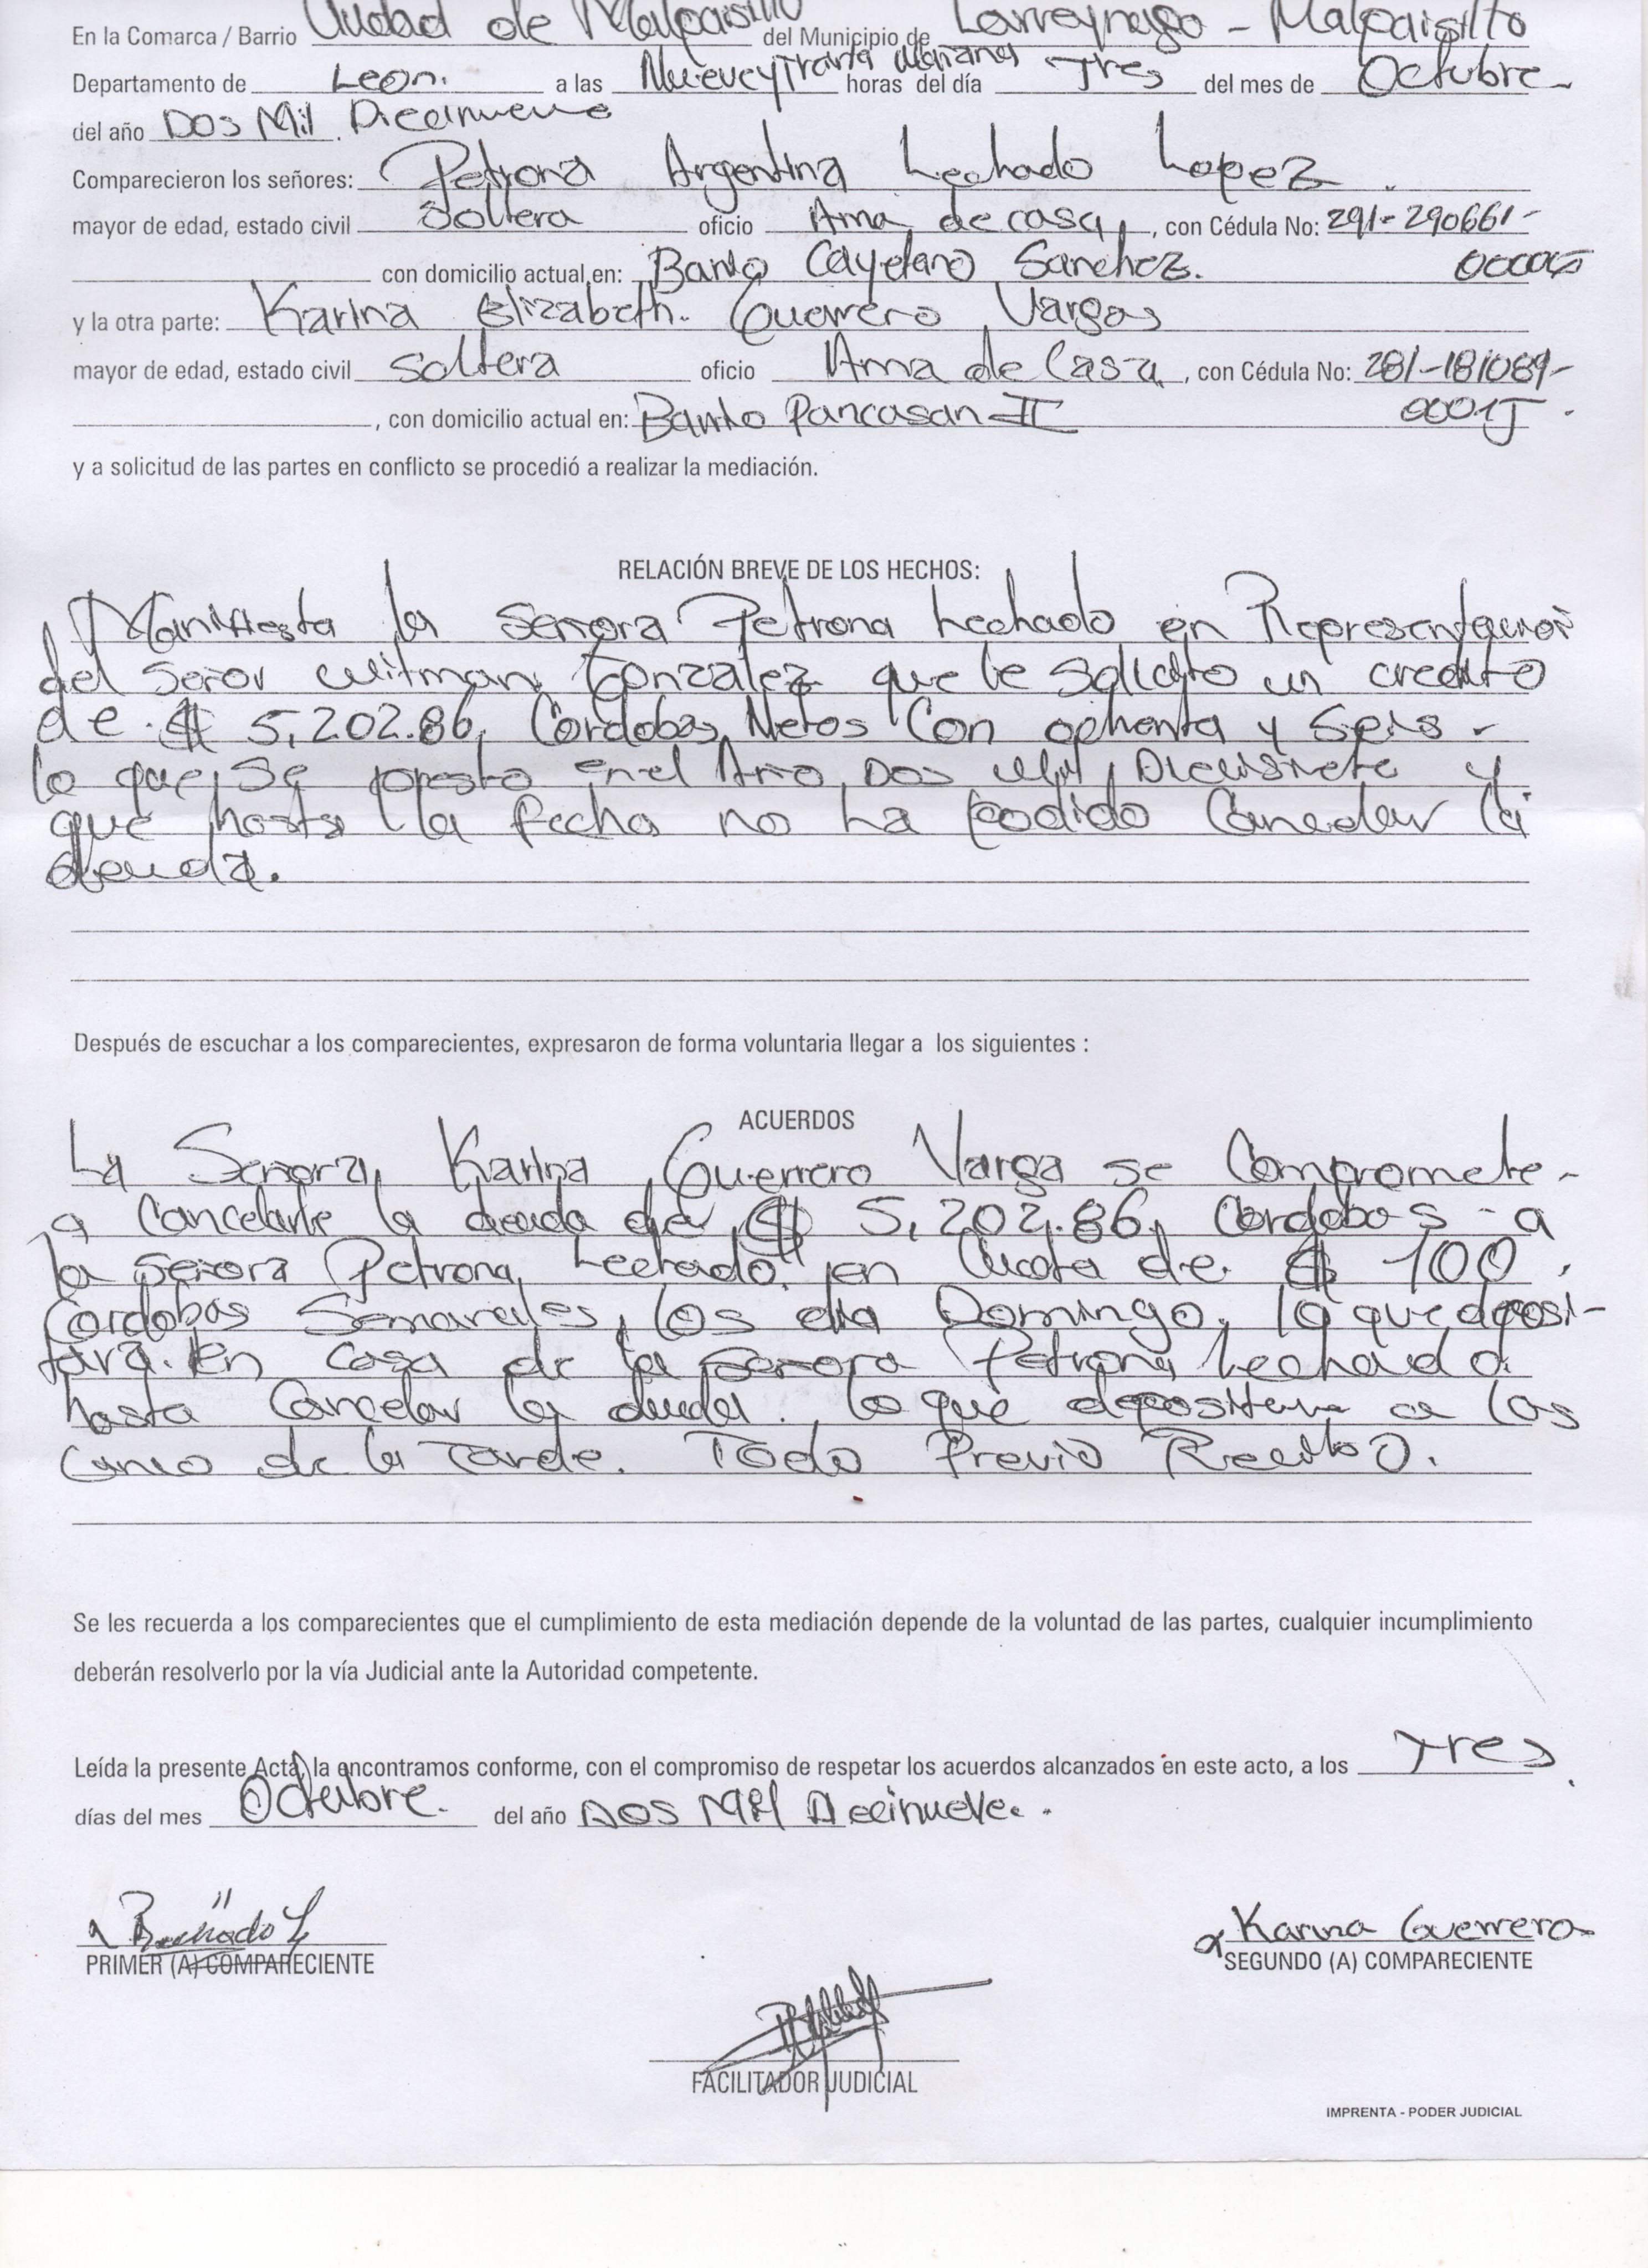 En la Comarca / Barrio Ciudad de Malpaisillo del Municipio de Larreynaga - Malpaisillo
Departamento de Leon. a las Nueve y Treinta Mañana horas del día Tres del mes de Octubre -
del año Dos Mil Diecinueve
Comparecieron los señores: Petrona Argentina Lechado Lopez.
mayor de edad, estado civil Soltera oficio Ama de casa, con Cédula No: 291-290661-
con domicilio actual en: Barrio Cayetano Sanchez.
y la otra parte: Karina Elizabeth. Guerrero Vargas
mayor de edad, estado civil soltera oficio Ama de Casa, con Cédula No: 281-181089-
, con domicilio actual en: Barrio Pancasan II 0001J.
y a solicitud de las partes en conflicto se procedió a realizar la mediación.
RELACIÓN BREVE DE LOS HECHOS:
Manifiesta la Señora Petrona Lechado en Representacion
del Señor Witman Gonzalez que le solicito un credito
de C$ 5,202.86, Cordobas Netos Con ochenta y Seis -
lo que se presto en el Año Dos Mil Diecisiete y
que hasta la fecha no ha podido Cancelar la
deuda.
Después de escuchar a los comparecientes, expresaron de forma voluntaria llegar a los siguientes :
ACUERDOS
La Señora Karina Guerrero Varga se Compromete -
a Cancelarle la deuda de C$ 5,202.86, Cordobas - a
la señora Petrona Lechado en Cuota de C$ 100.
Cordobas Semanales, los dia Domingo, lo que deposi-
tara. En casa de la señora Petrona Lechado
hasta Cancelar la deuda. lo que depositara a las
Cinco de la Tarde. Todo Previo Recibo.
Se les recuerda a los comparecientes que el cumplimiento de esta mediación depende de la voluntad de las partes, cualquier incumplimiento
deberán resolverlo por la vía Judicial ante la Autoridad competente.
Leída la presente Acta, la encontramos conforme, con el compromiso de respetar los acuerdos alcanzados en este acto, a los Tres
días del mes Octubre. del año Dos Mil Diecinueve.
Lechado L
PRIMER (A) COMPARECIENTE
Karina Guerrero
SEGUNDO (A) COMPARECIENTE
FACILITADOR JUDICIAL
IMPRENTA - PODER JUDICIAL